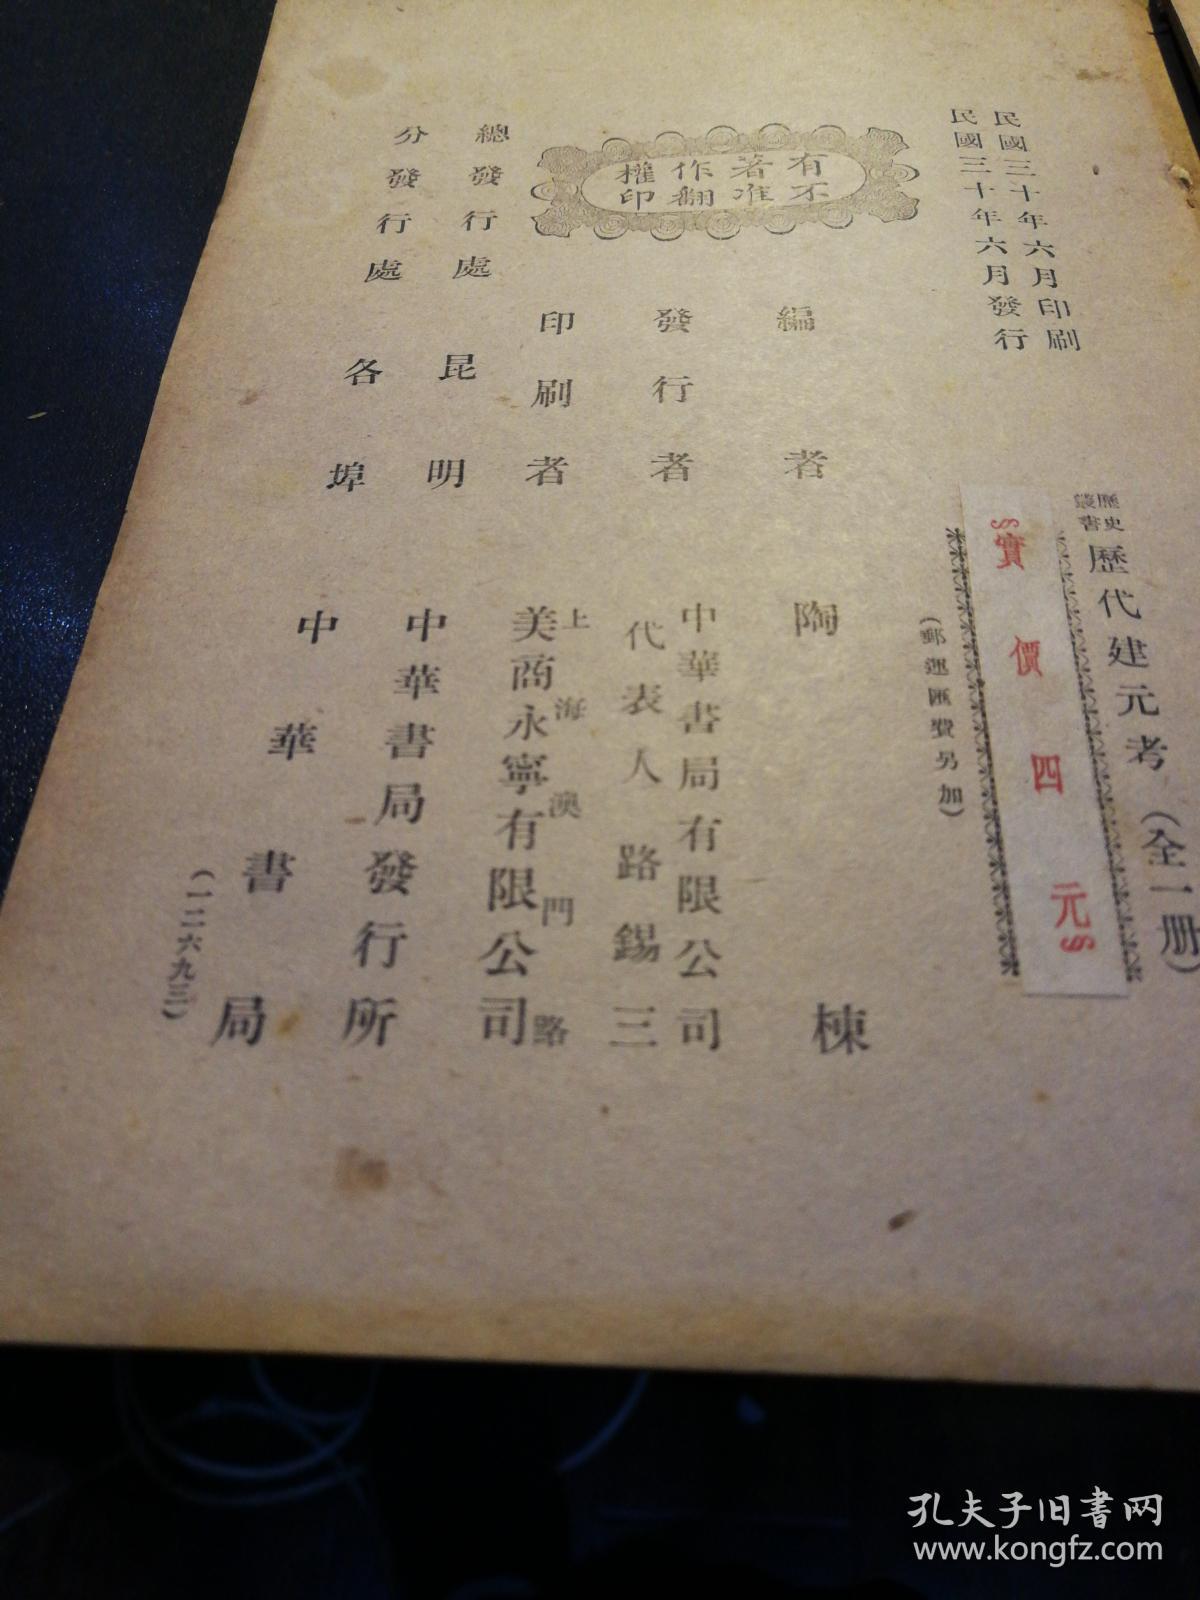 民國三十年六月印刷
民國三十年六月發行
歷史叢書
歷代建元考（全一册）
§實價四元§
（郵運匯費另加）
有著作權
不准翻印
編者 陶棟
發行者 中華書局有限公司
代表人 路錫三
印刷者 上海澳門路
美商永寧有限公司
總發行處 昆明 中華書局發行所
分發行處 各埠 中華書局
（一二六九三）
孔夫子旧書网
www.kongfz.com